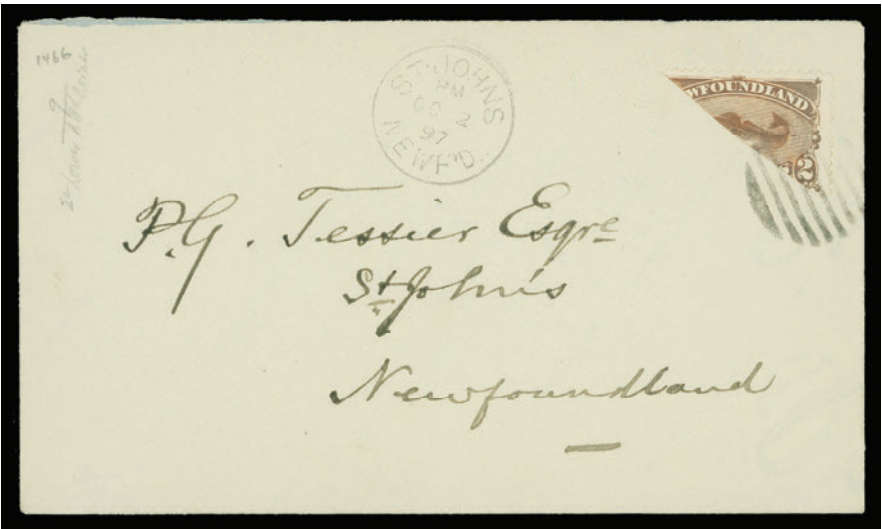 1466
ST. JOHNS
PM
OC 2
97
NEWF'D.
WFOUNDLAND
2
P.G. Tessier Esqre
St John's
Newfoundland